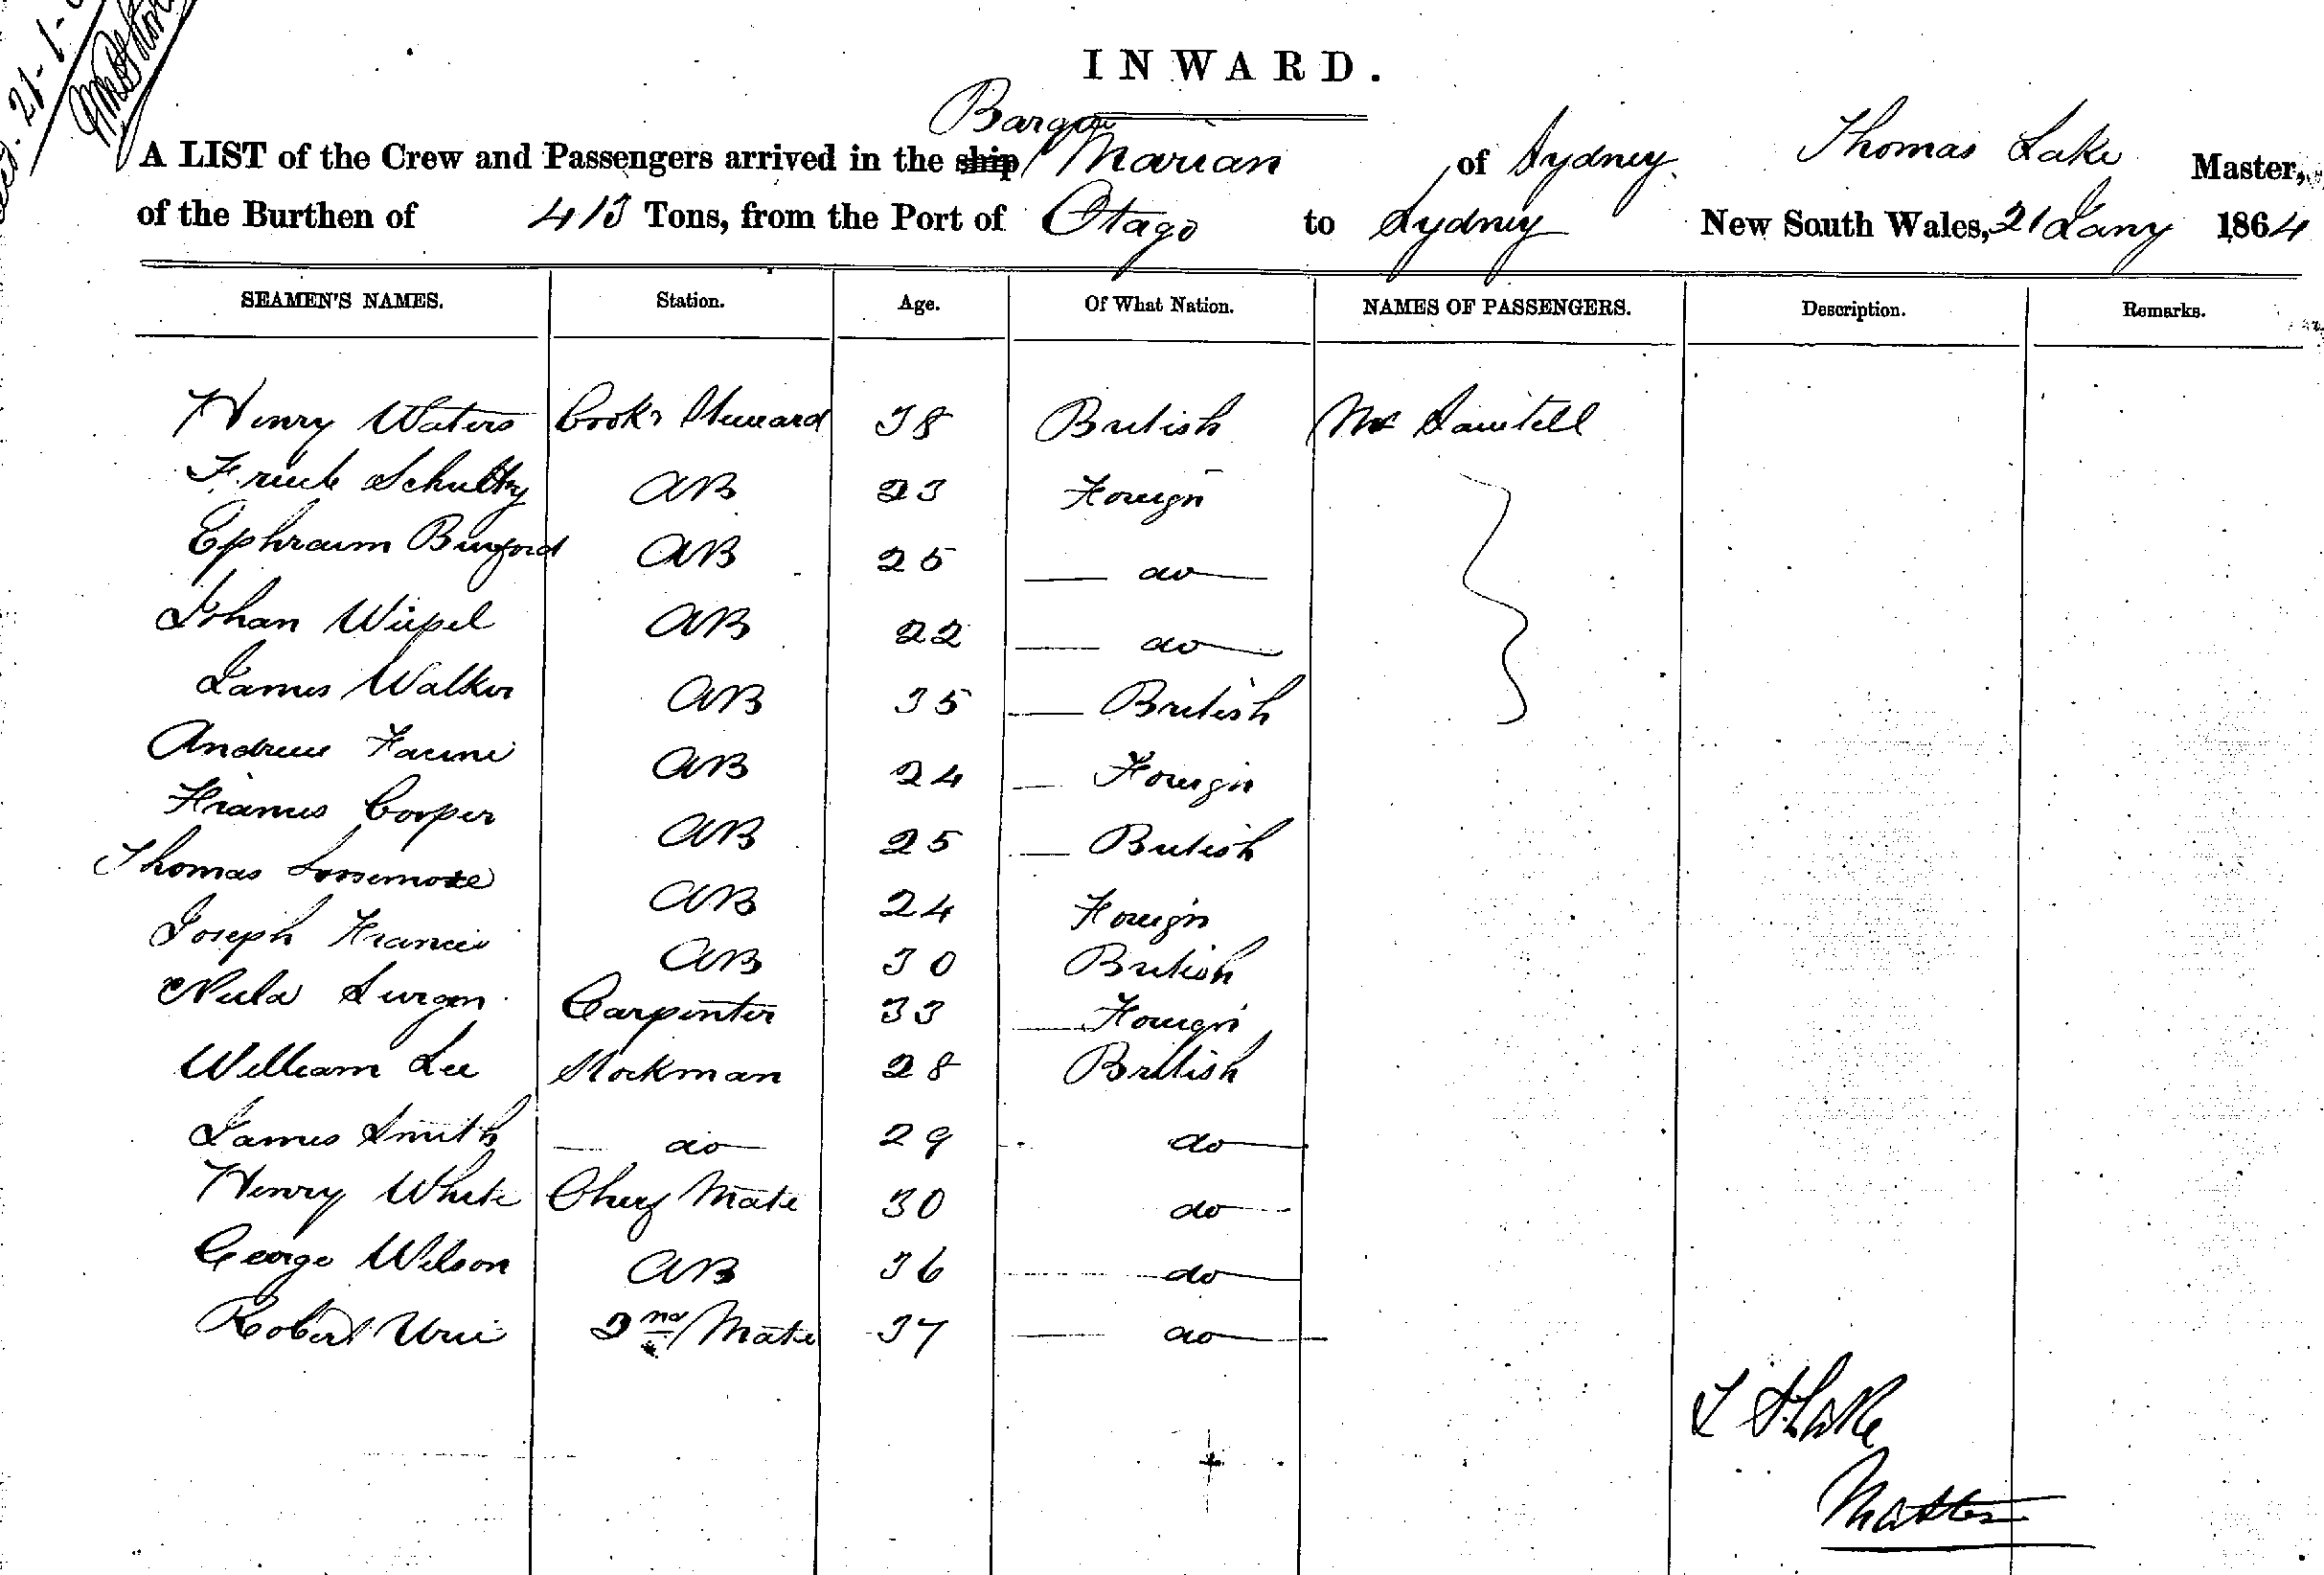 21-1-
INWARD.
Barque
A LIST of the Crew and Passengers arrived in the ship Marian of Sydney Thomas Lake Master,
of the Burthen of 413 Tons, from the Port of Otago to Sydney New South Wales, 21 Jany 1864
SEAMEN'S NAMES. Station. Age. Of What Nation. NAMES OF PASSENGERS. Description. Remarks.
Henry Waters Cook & Steward 38 British
Schultz AB 23 Foreign
Ephraim Burford AB 25 do
Johan AB 22 do
James Walker AB 35 British
Andrew AB 24 Foreign
Francis Cooper AB 25 British
Thomas Loosemore AB 24 Foreign
Joseph Francis AB 30 British
Carpenter 33 Foreign
William Lee Stockman 28 British
James Smith do 29 do
Henry White Chief Mate 30 do
George Wilson AB 36 do
Robert 2nd Mate 37 do
Lake
Master